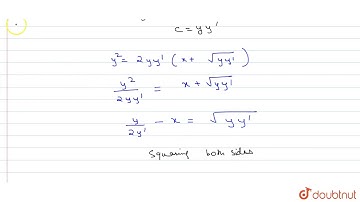 c = yy'
y² = 2yy' (x + √yy')
y²/2yy' = x + √yy'
y/2y' - x = √yy'
Squaring both sides
doubtnut